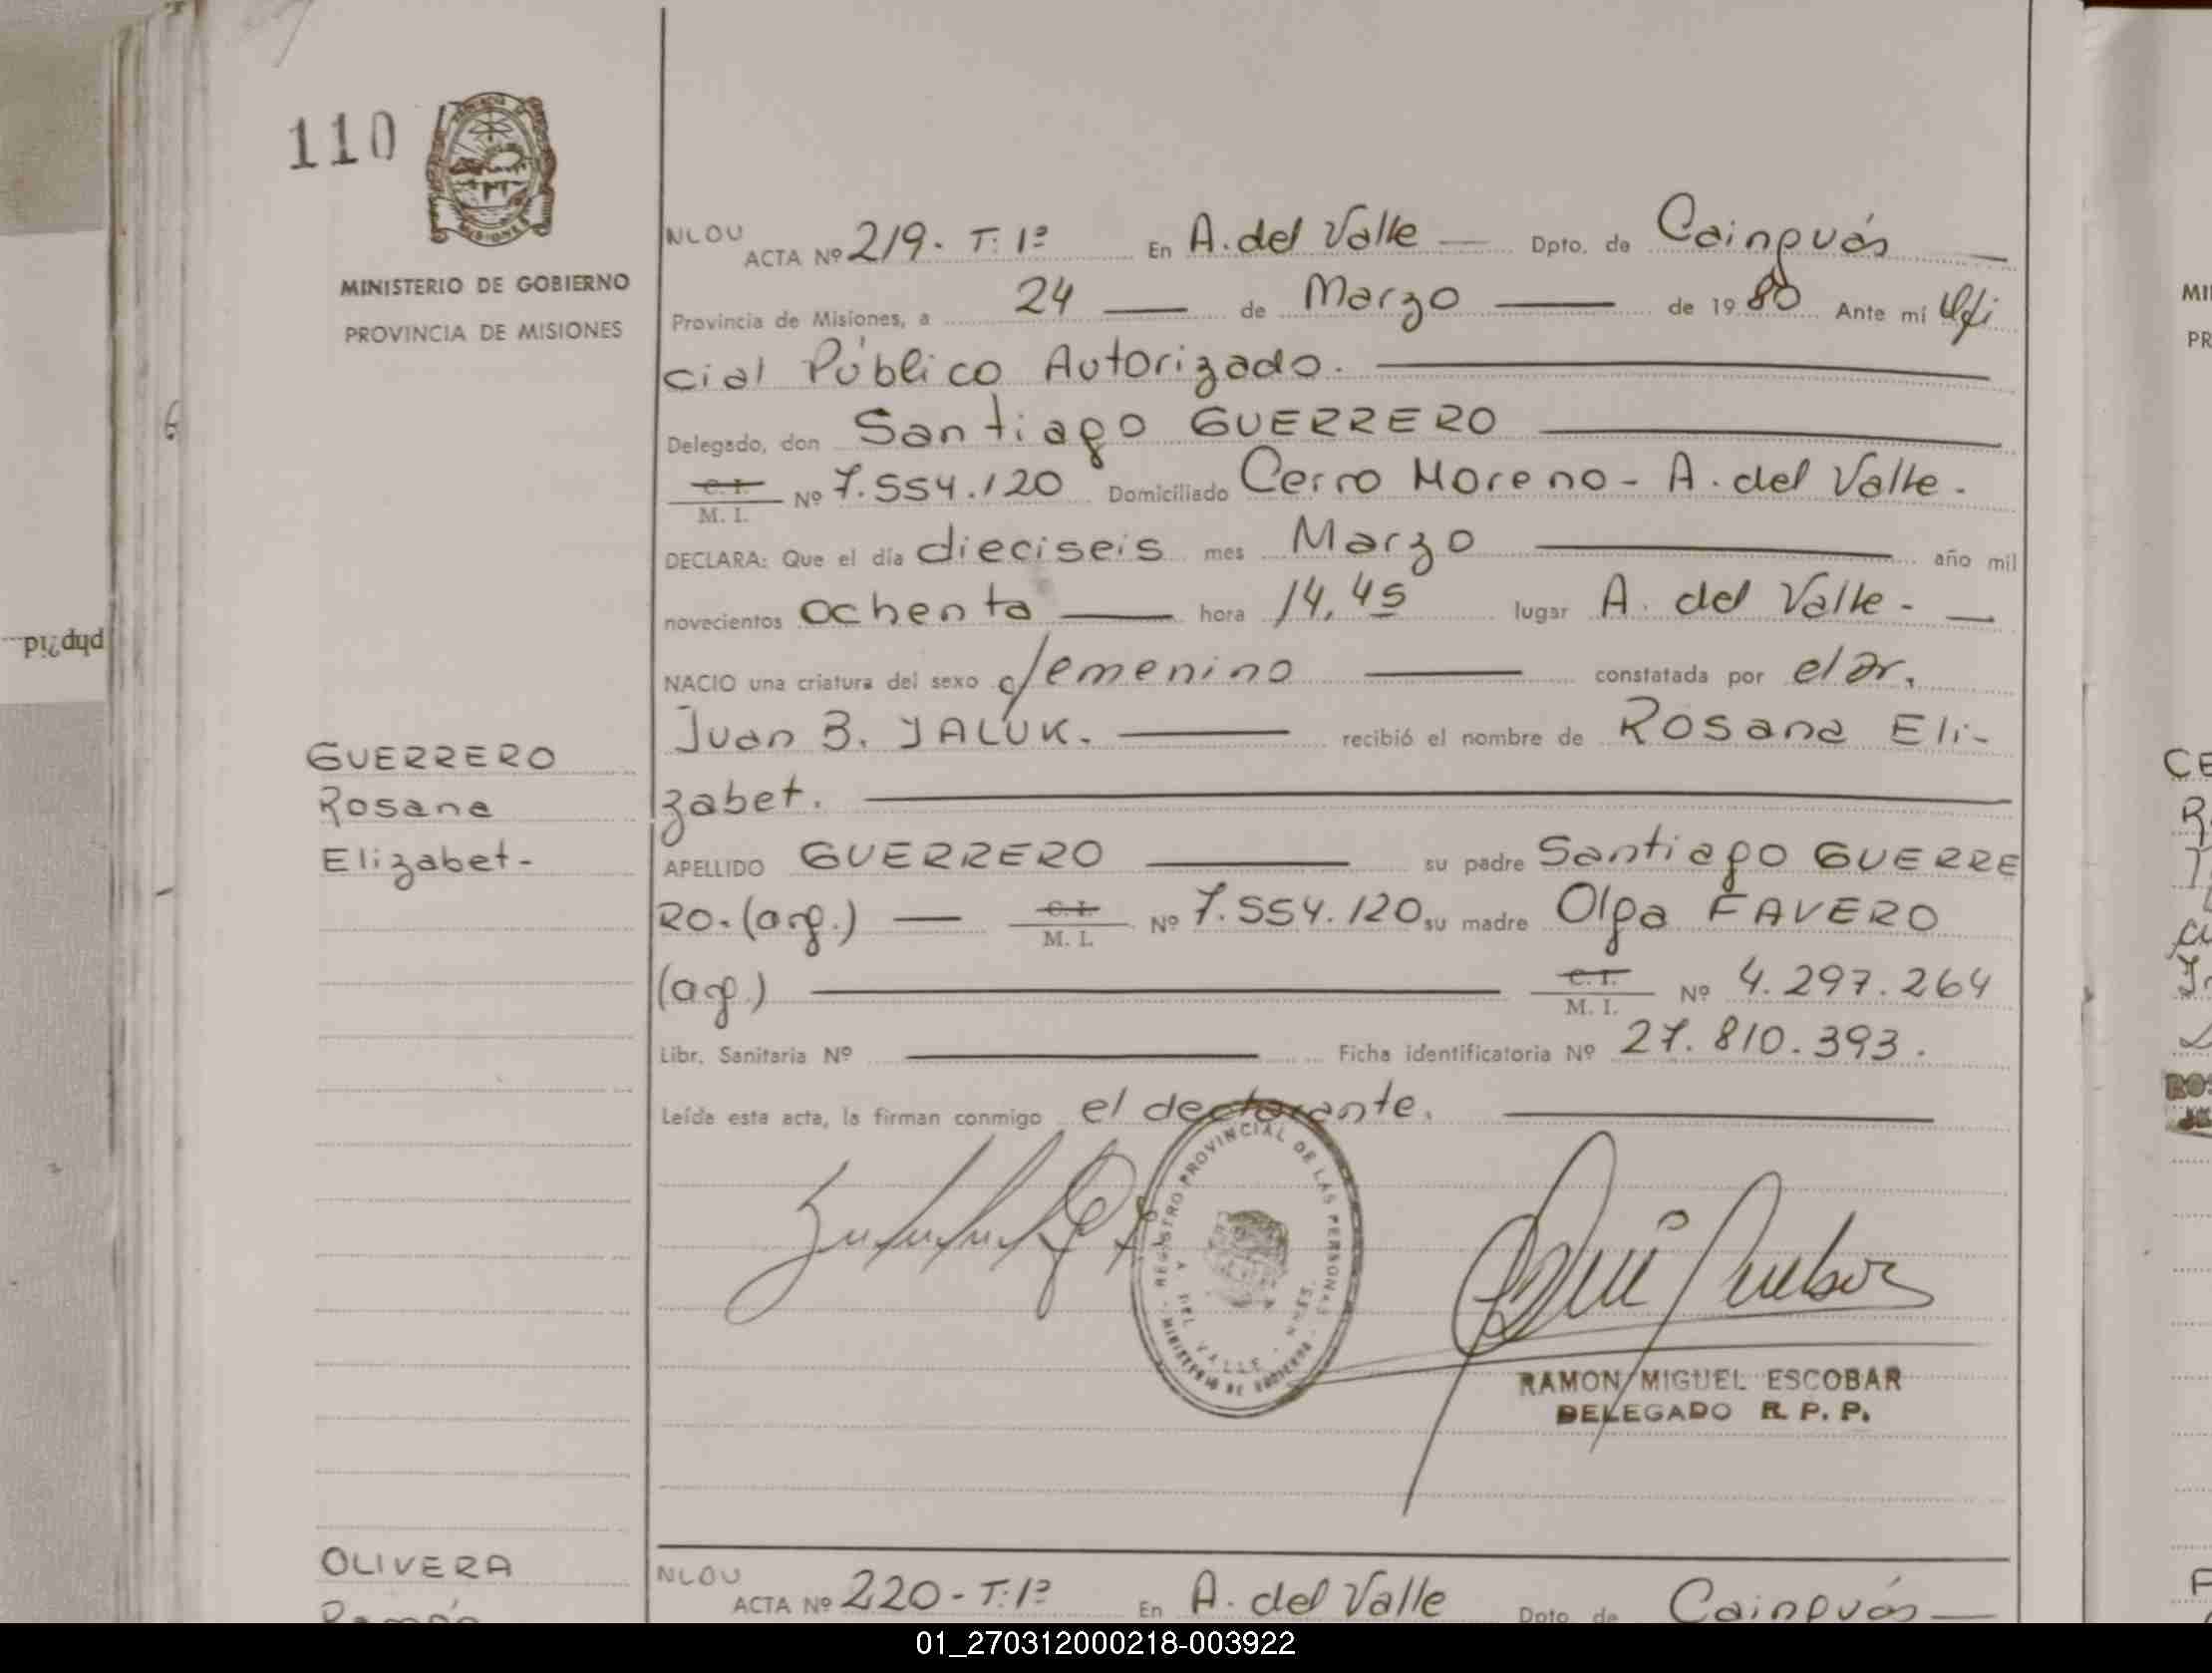 110
MINISTERIO DE GOBIERNO
PROVINCIA DE MISIONES
NLOU
ACTA Nº 219. T: 1º En A. del Valle Dpto. de Cainguás
Provincia de Misiones, a 24 de Marzo de 1980 Ante mí Ofi
cial Público Autorizado.
Delegado, don Santiago GUERRERO
C. I. M. I. Nº 7.554.120 Domiciliado Cerro Moreno - A. del Valle.
DECLARA: Que el día dieciseis mes Marzo año mil
novecientos ochenta hora 14,45 lugar A. del Valle.-
NACIO una criatura del sexo femenino constatada por el Dr.
Juan B. JALUK. recibió el nombre de Rosana Eli-
zabet.
APELLIDO GUERRERO su padre Santiago GUERRE
RO. (arg.) C. I. M. I. Nº 7.554.120 su madre Olga FAVERO
(arg.) C. I. M. I. Nº 4.297.264
Libr. Sanitaria Nº Ficha identificatoria Nº 27.810.393.
Leída esta acta, la firman conmigo el declarante.
GUERRERO
Rosana
Elizabet-
REGISTRO PROVINCIAL DE LAS PERSONAS
A. DEL VALLE - MNES.
MINISTERIO DE GOBIERNO
RAMON MIGUEL ESCOBAR
DELEGADO R. P. P.
OLIVERA
Ramón
NLOU
ACTA Nº 220 - T: 1º En A. del Valle Dpto. de Cainguás
php?id
01_270312000218-003922